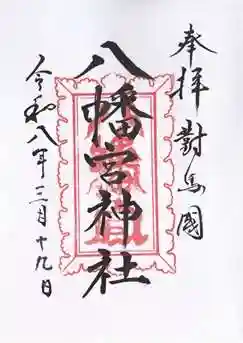 奉拝 對馬國
八幡宮神社
令和八年三月十九日